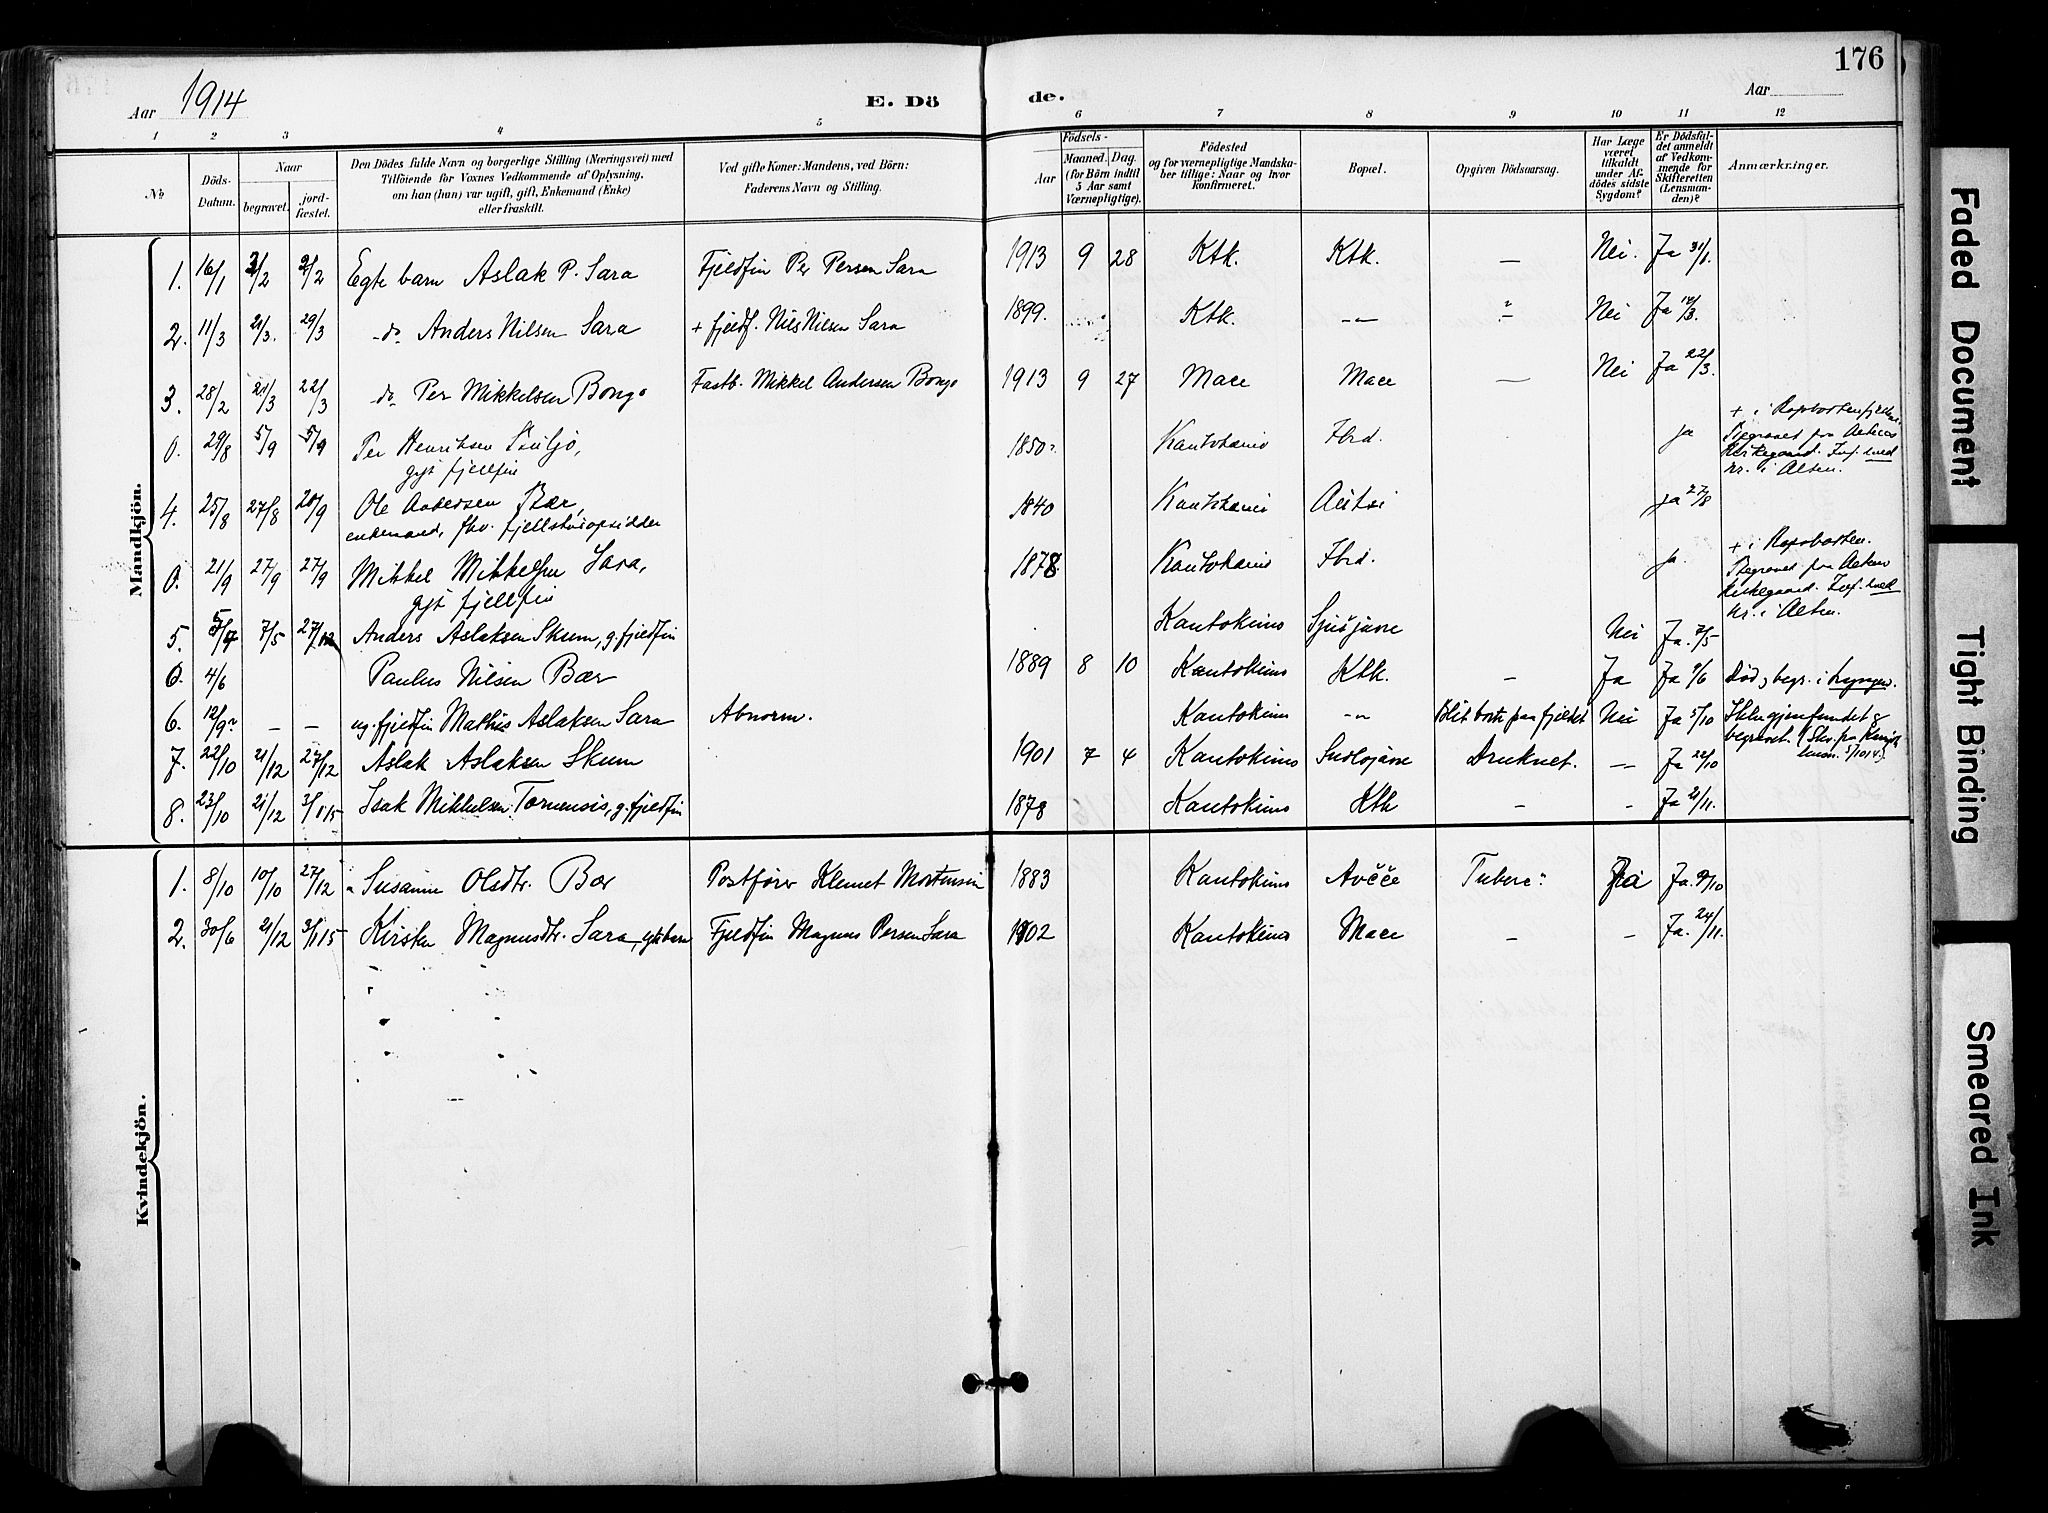 176
Aar 1914
E. Dö de.
Aar
1 2 3 4 5 6 7 8 9 10 11 12
No.
Döds-Datum.
Naar
begravet.
jord-fæstet.
Den Dödes fulde Navn og borgerlige Stilling (Næringsvei) med
Tilföiende for Voxnes Vedkommende af Oplysning,
om han (hun) var ugift, gift, Enkemand (Enke)
eller fraskilt.
Ved gifte Koner: Mandens, ved Börn:
Faderens Navn og Stilling.
Födsels-
Aar
Maaned. Dag.
(for Börn indtil
5 Aar samt
Værnepligtige).
Födested
og for værnepligtige Mandska-
ber tillige: Naar og hvor
konfirmeret.
Bopæl.
Opgiven Dödsaarsag.
Har Læge
været
tilkaldt
under Af-
dödes sidste
Sygdom?
Er Dödsfal-
det anmeldt
af Vedkom-
mende for
Skifteretten
(Lensman-
den)?
Anmærkninger.
Mandkjön.
1. 16/1 2/2 Egte barn Aslak P. Sara Fjeldfin Per Persen Sara 1913 9 28 Ktk. Ktk. — Nei. Ja 31/1.
2. 11/3 21/3. 29/3 do Anders Nilsen Sara + fjeldf. Nils Nilsen Sara 1899. Ktk. -"- Nei Ja 12/3.
3. 28/2 21/3 22/3 do Per Mikkelsen Bongo Fastb. Mikkel Andersen Bongo 1913 9 27 Mace Mace — Nei Ja 22/3.
0. 29/8 5/9 5/9 Per Henriksen
gift fjellfin 1850 Kautokeino Ibid. ja
+ i
Begravet paa
Kirkegaard. Inf. med
nr. i Alten.
4. 25/8 27/8 20/9 Ole Andersen Bær,
enkemand, fhv. fjellstueopsidder 1840 Kautokeino Autsi ja 27/8
0. 21/9 27/9 27/9 Mikkel Mikkelsen Sara,
gift fjellfin 1878 Kautokeino Ibid. ja.
+ i
Begravet paa
Kirkegaard. Inf. med
nr. i Alten.
5. 7/5 27/12 Anders Aslaksen Skum, g. fjeldfin Kautokeino Nei Ja. 7/5
0. 4/6 Paulus Nilsen Bær 1889 8 10 Kautokeino Ktk. — Ja Ja Død og begr. i Lyngen.
6. 12/9? — — ug. fjeldfin Mathis Aslaksen Sara Abnorm. Kautokeino -"- Blit borte paa fjeldet Nei Ja 5/10
begravet.
7. 22/10 21/12 27/12 Aslak Aslaksen Skum 1901 7 4 Kautokeino Druknet. — Ja 22/10
8. 23/10 21/12 3/1 15 Isak Mikkelsen Tornensis, g. fjeldfin 1878 Kautokeino Ktk — - Ja 21/11.
Kvindekjön.
1. 8/10 10/10 27/12 Susanne Olsdtr. Bær Postfører Klemet Mortensen 1883 Kautokeino Avčče Tuberc. Ja Ja. 9/10
2. 30/6 21/12 3/1 15 Kirsten Magnusdtr. Sara, egtebarn Fjeldfin Magnus Persen Sara 1902 Kautokeino Mace — - Ja. 24/11.
Faded Document
Tight Binding
Smeared Ink